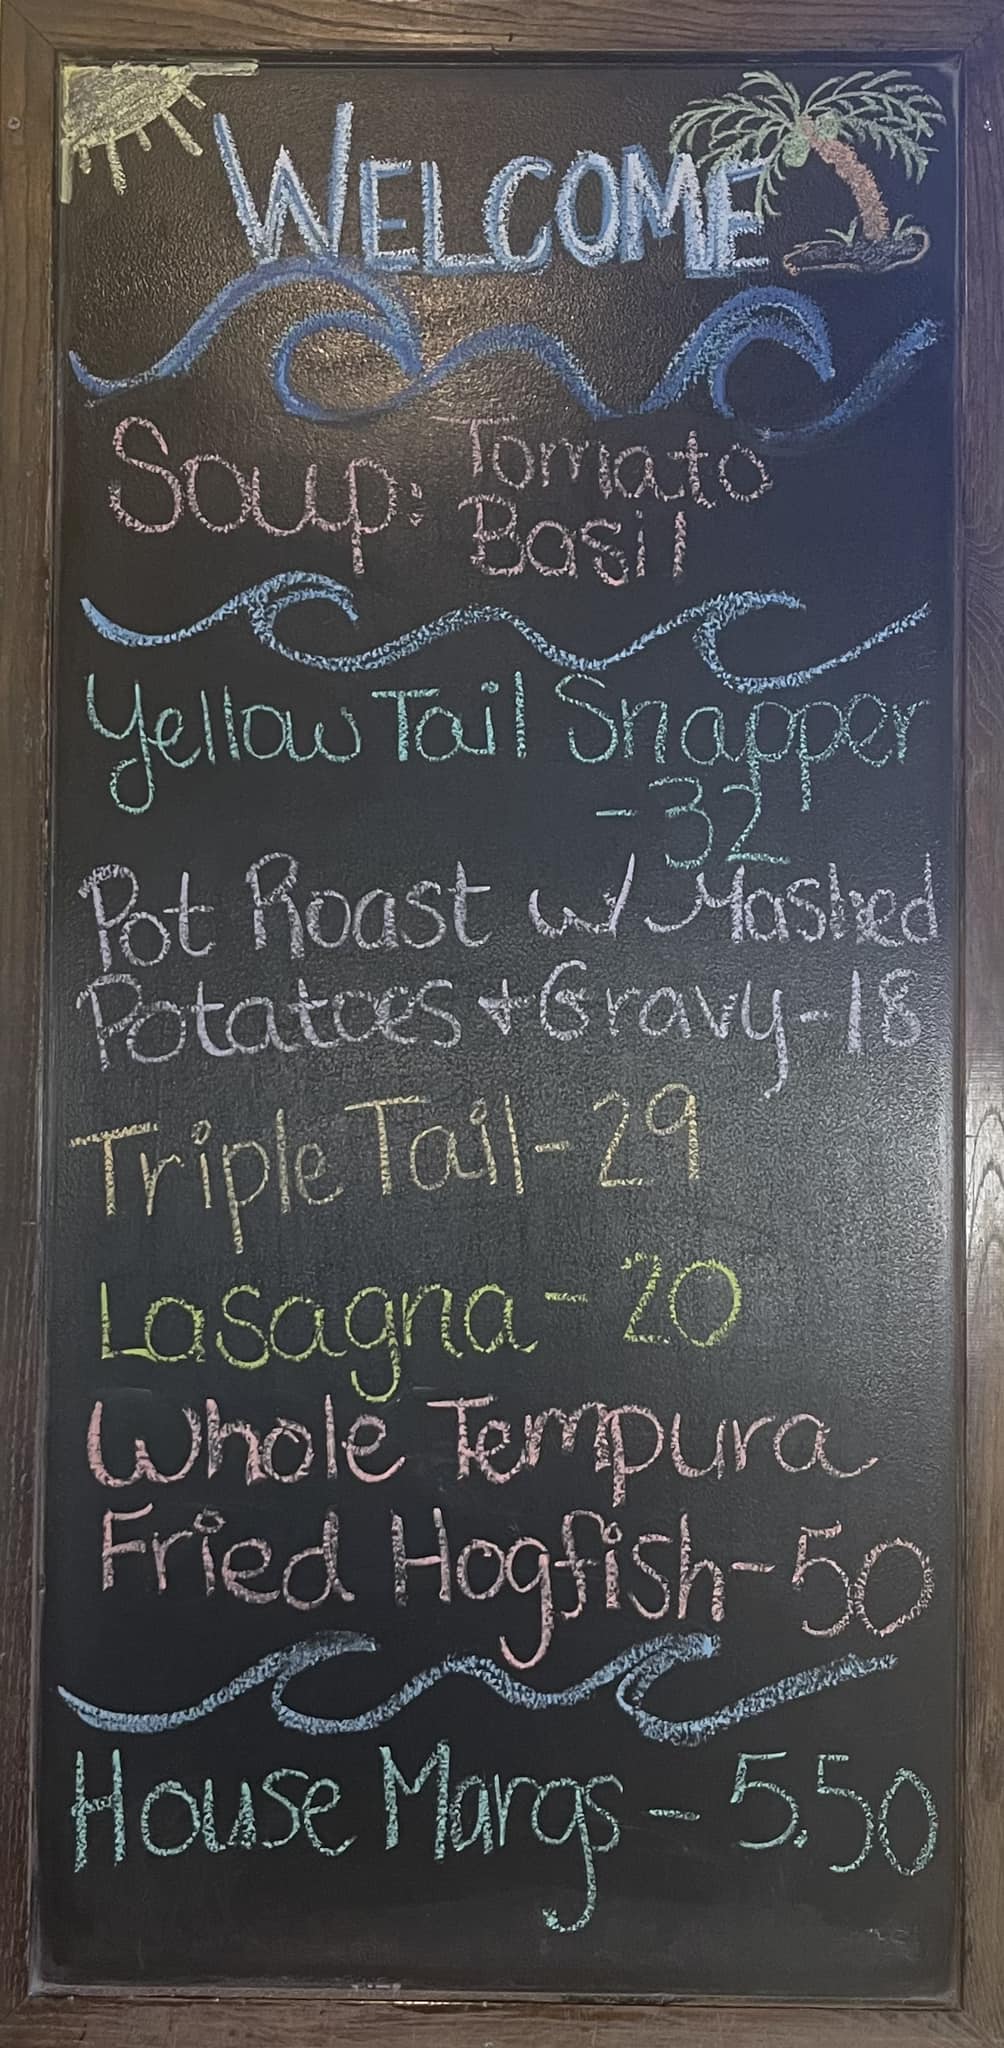 WELCOME
Soup: Tomato
Basil
Yellow Tail Snapper
-32
Pot Roast w/ Mashed
Potatoes + Gravy-18
Triple Tail-29
Lasagna-20
Whole Tempura
Fried Hogfish-50
House Margs-5.50